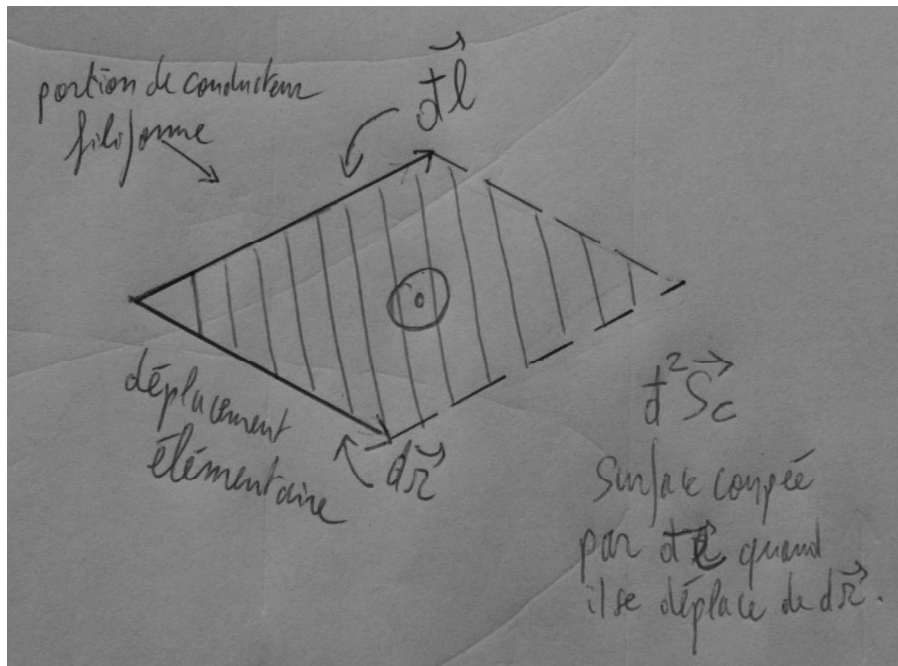 portion de conducteur
filiforme
đl⃗
déplacement
élémentaire
dr⃗
đ²S⃗c
Surface coupée
par đl quand
il se déplace de dr⃗.